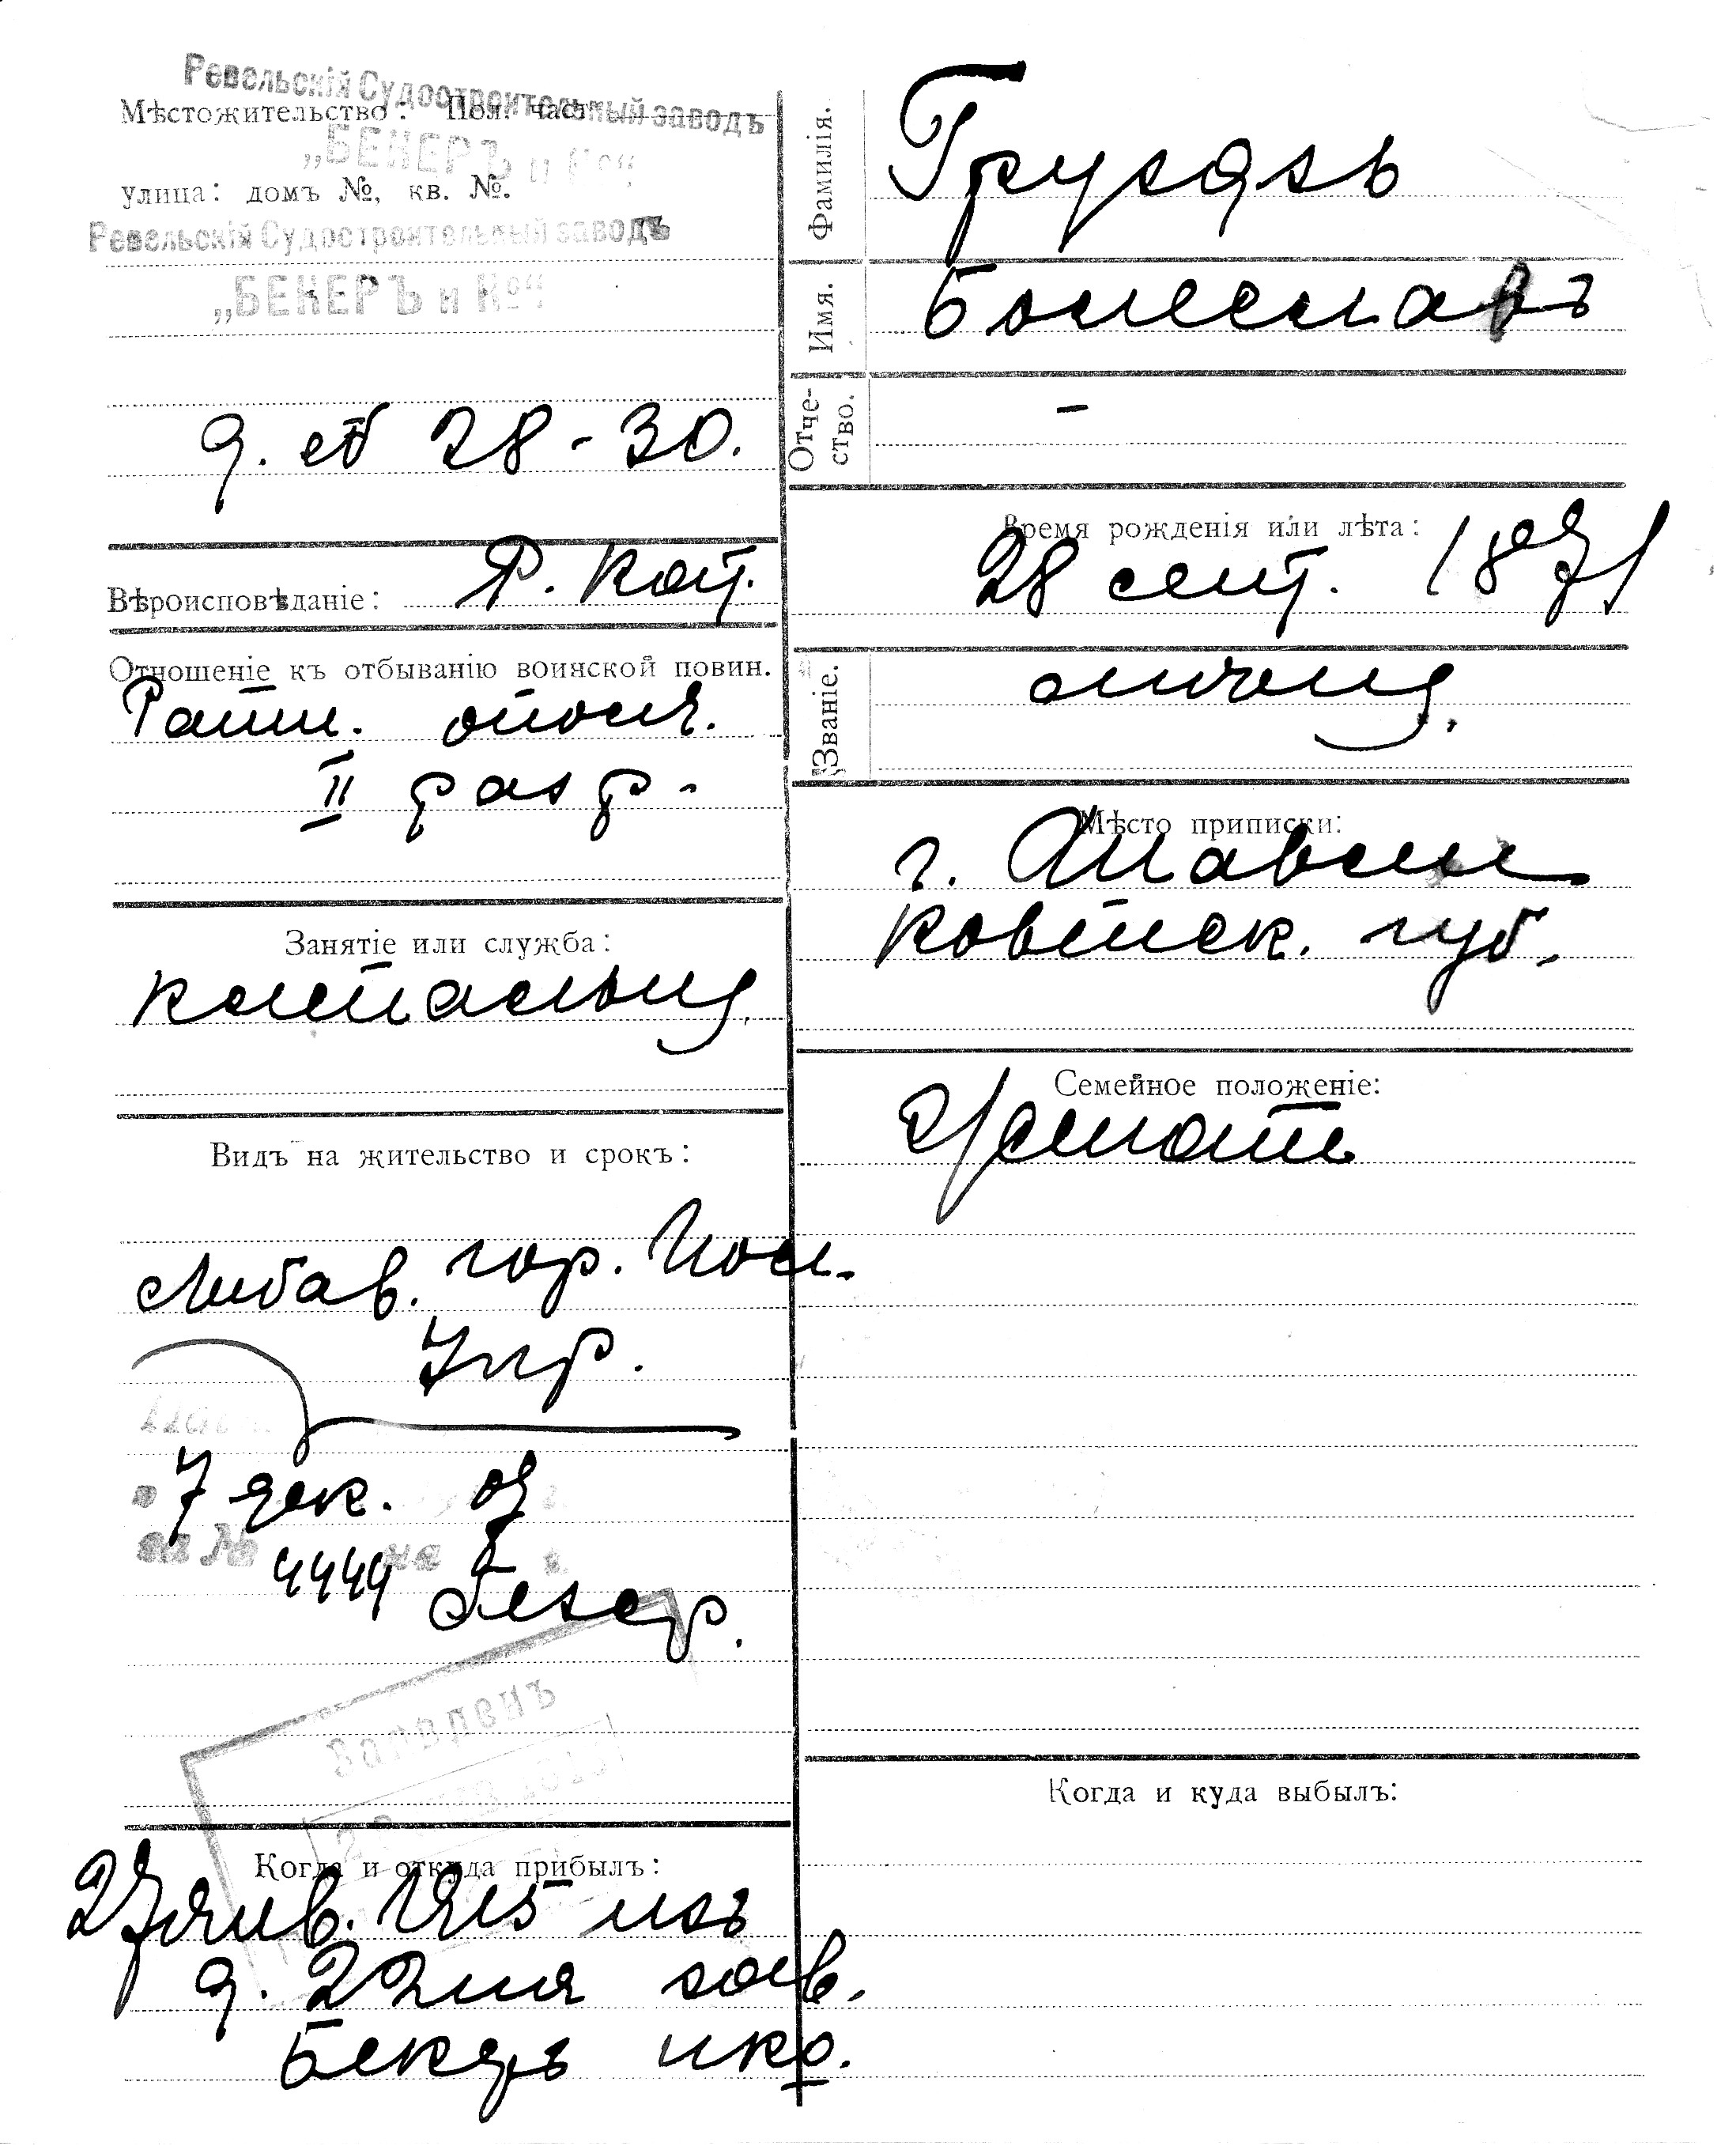 Ревельскій Судостроительный заводъ
Мѣстожительство: Пол. част
„БЕКЕРЪ и Ко“
улица: домъ №, кв. №.
Ревельскій Судостроительный заводъ
„БЕКЕРЪ и Ко“
28-30.
Вѣроисповѣданіе: Р. Кат.
Отношеніе къ отбыванію воинской повин.
Ратн. ополч.
II разр.
Занятіе или служба:
Видъ на жительство и срокъ:
Либав. гор. Пол.
Упр.
7 дек.
4444 безср.
Когда и откуда прибылъ:
27 янв. 1915 изъ
д. 22 зав.
Бекеръ и Ко.
Фамилія.
Имя. Болеславъ
Отчество. –
Время рожденія или лѣта:
28 сент. 1871
Званіе.
Мѣсто приписки:
г. Шавли
Ковенск. губ.
Семейное положеніе:
Женатъ
Когда и куда выбылъ: